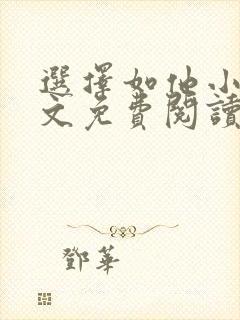 選擇如他小
文免費閱讀
鄧華